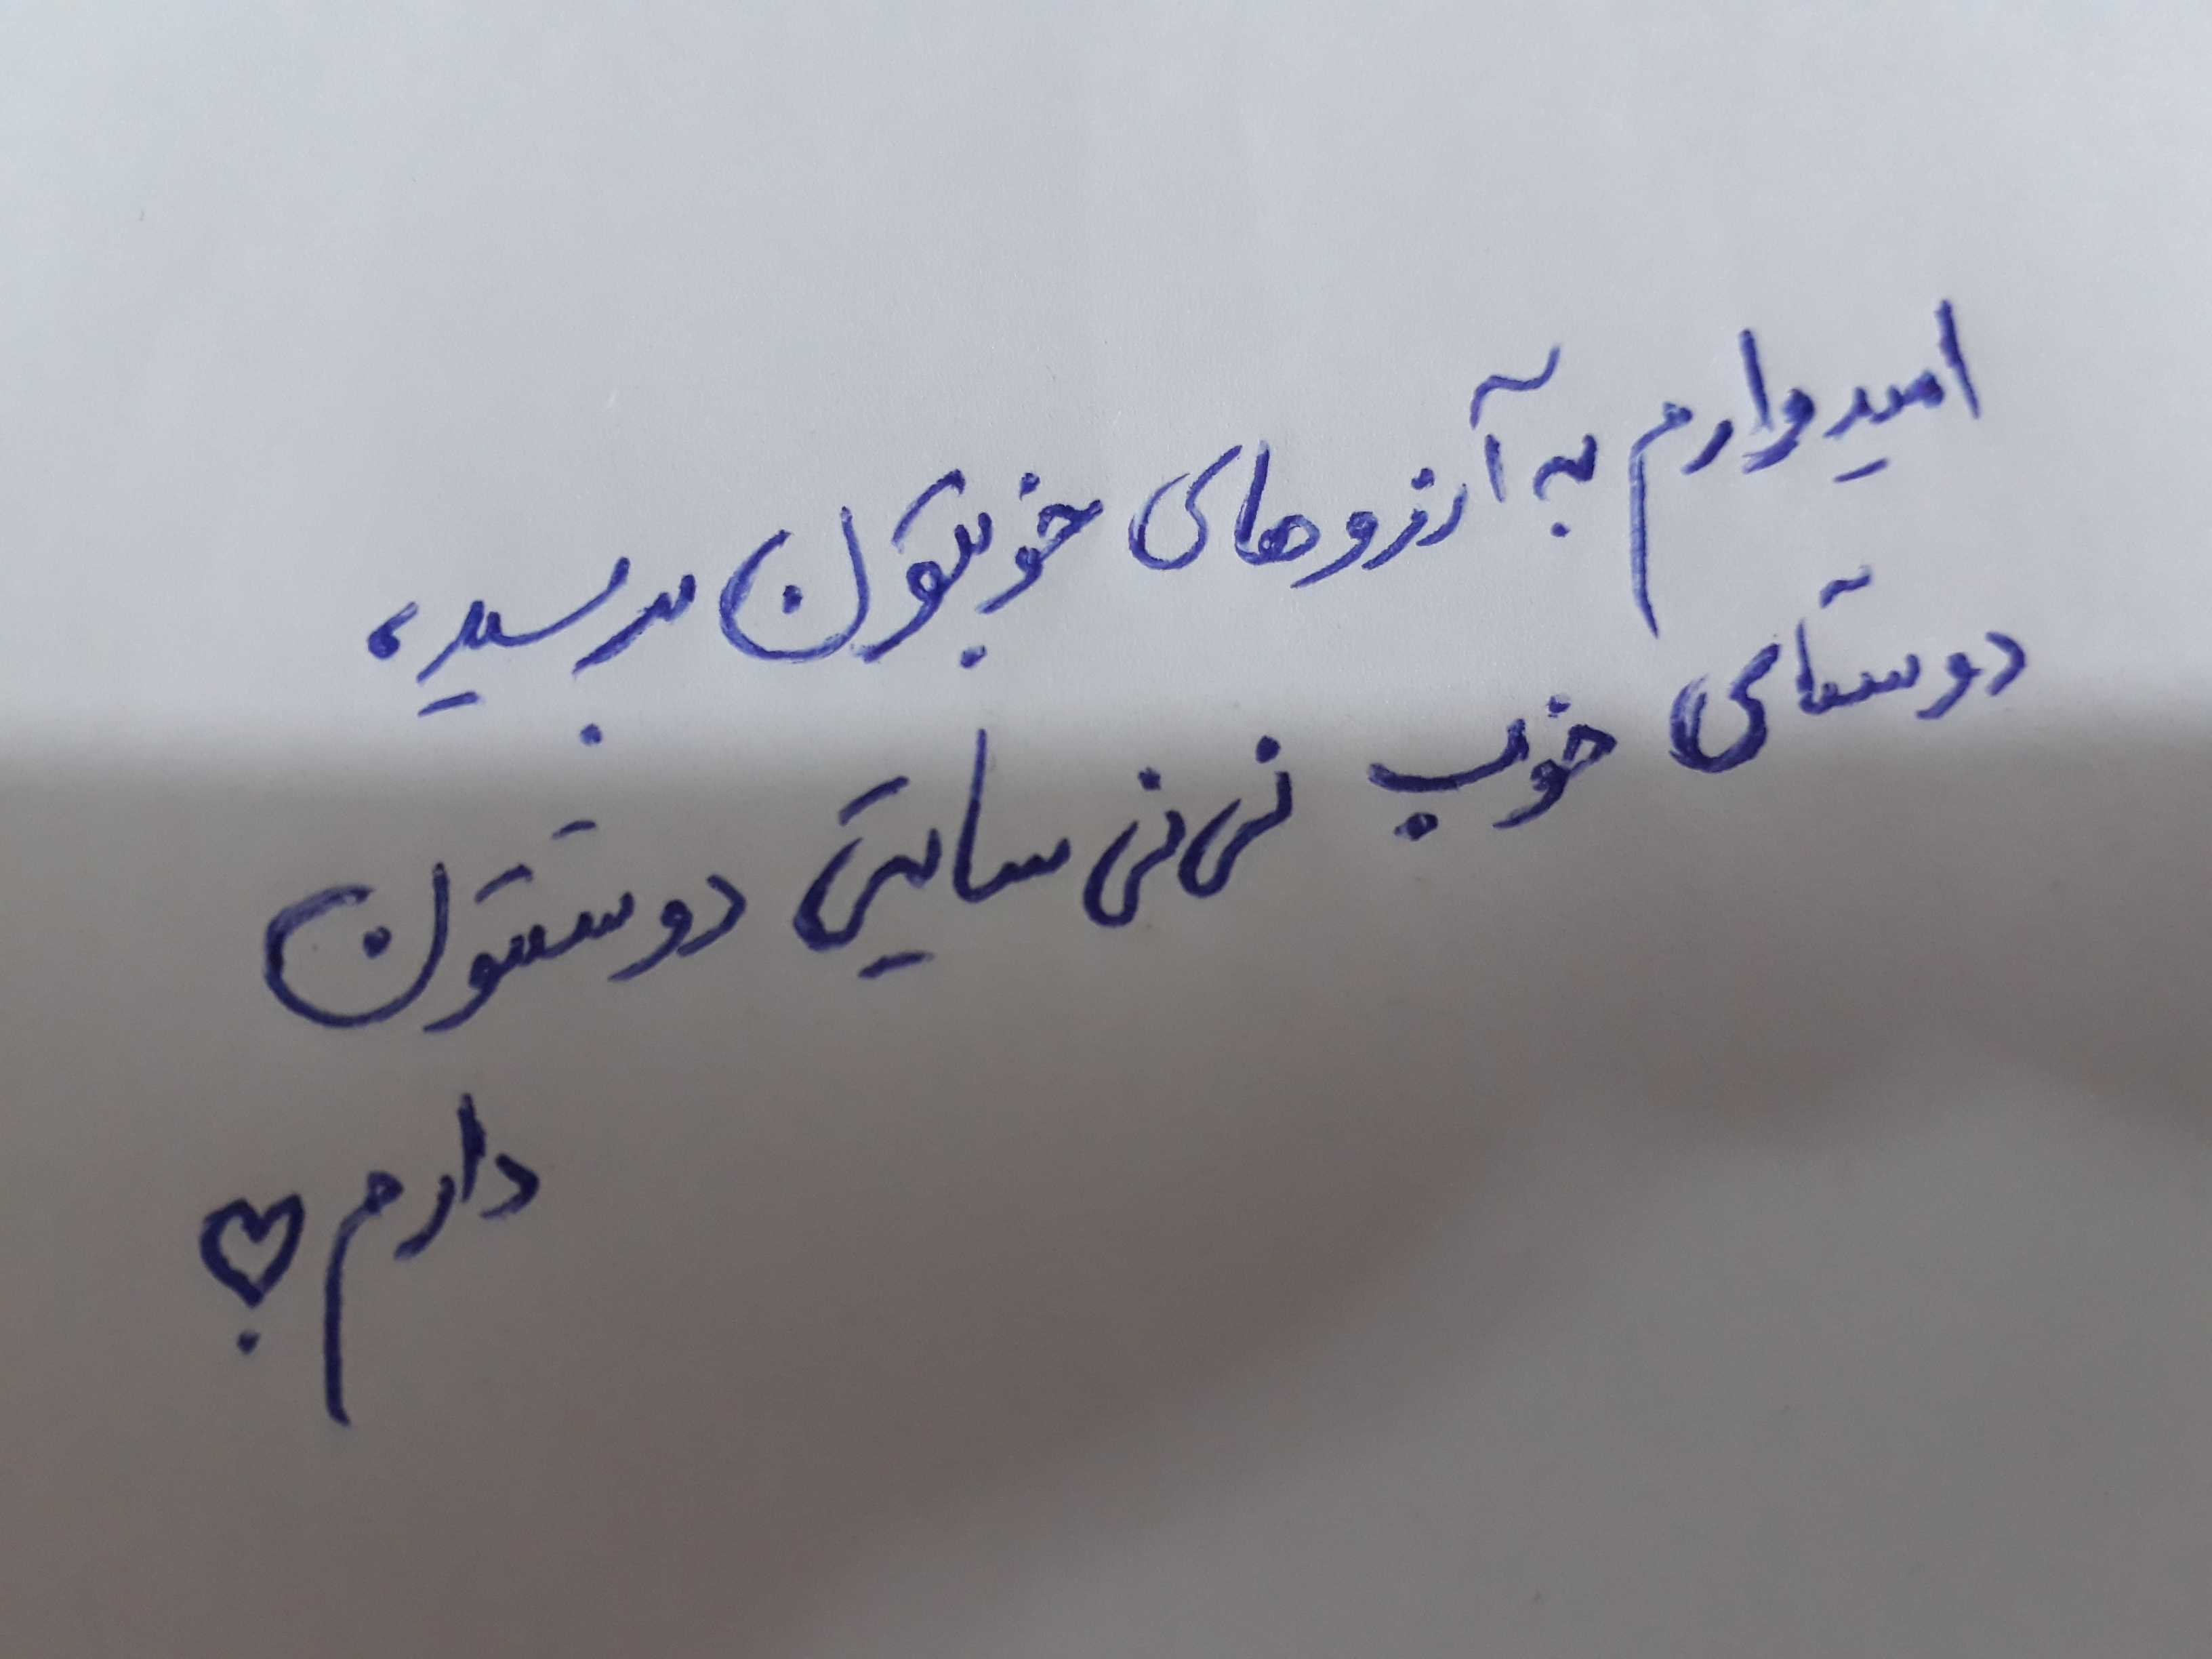 امیدوارم به آرزوهای خوبتون برسید،
دوستای خوب نی نی سایتی دوستتون
دارم ♡